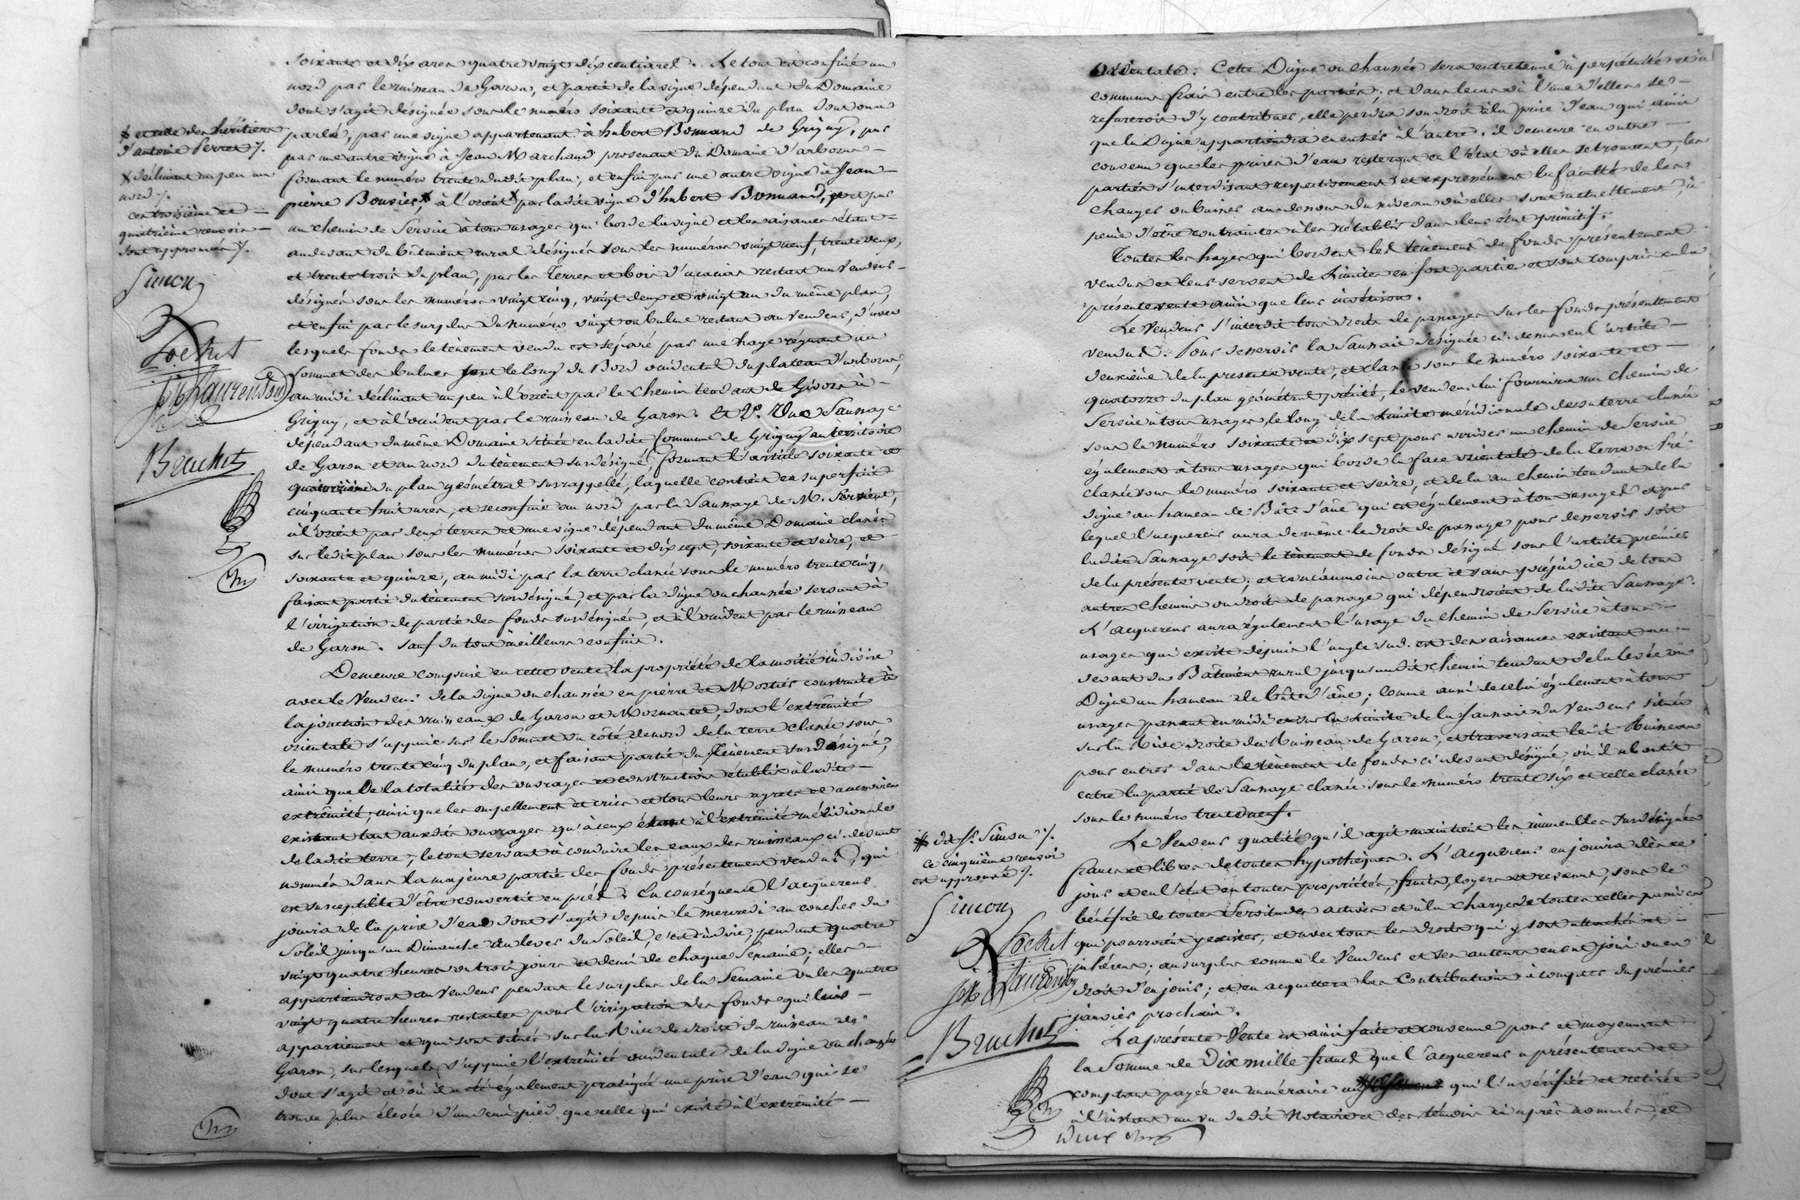 soixante et dix ares quatre vingt dix centiares. Le tout est confiné au
nord par le ruisseau de Garon, et partie de la vigne dépendant du Domaine
dont s'agit désignée sous le numéro soixante et quinze du plan dont on a
parlé, par une vigne appartenant à hubert Bonnand de Grigny, par
par une autre vigne à Jean Marchand provenant du Domaine d'arboras
formant le numéro trente dudit plan, et enfin par une autre vigne à Jean
pierre Bouvier, à l'orient par ladite vigne d'hubert Bonnand, et par
un chemin de Service à tous usages qui borde la vigne et les aisances étant
au devant du bâtiment rural désignés sous les numéros vingt neuf, trente deux,
et trente trois du plan, par les Terres et bois d'acacias restant au Vendeur
désignés sous les numéros vingt cinq, vingt deux et vingt un du même plan,
et enfin par le surplus du numéro vingt ou balme restant au vendeur, d'avec
lesquels fonds le tènement vendu est séparé par une haye régnant au
sommet des balmes sur le long du bord occidental du plateau d'arboras,
au midi déclinant un peu à l'orient par le chemin tendant de Givors à
Grigny, et à l'occident par le ruisseau de Garon. Et 2°. Une Saunaye
dépendant du même Domaine située en ladite Commune de Grigny au territoire
de Garon et au nord du tènement susdésigné formant l'article soixante et
quatorzième du plan géométral surrappellé, laquelle contient en superficie
cinquante huit ares, et se confine au nord par la Saunaye de M.
à l'orient par deux terres et une vigne dépendant du même Domaine classés
sur ledit plan sous les numéros soixante et dix sept, soixante et seize, et
soixante et quinze, au midi par la terre classée sous le numéro trente cinq,
faisant partie du tènement susdésigné, et par la digue ou chaussée servant à
l'irrigation de partie des fonds susdésignés, et à l'occident par le ruisseau
de Garon. Sauf du tout meilleurs confins.
Demeure comprise en cette vente la propriété de la moitié indivise
avec le Vendeur de la digue ou chaussée en pierre et Mortier construite à
la jonction des ruisseaux de Garon et Mornantet, dont l'extrêmité
orientale s'appuie sur le Sommet du côté de nord de la terre classée sous
le numéro trente cinq du plan, et faisant partie du Tènement susdésigné,
ainsi que De la totalité des ouvrages et construction établis à ladite
extrêmité, ainsi que les empellements et cries et tous leurs agrets et accessoires
existant tant auxdits ouvrages qu'à ceux étant à l'extrêmité méridionale
de ladite terre, le tout servant à conduire les eaux des ruisseaux ci-devant
nommés dans la majeure partie des fonds présentement vendus, qui
est susceptible d'être convertie en prés. En conséquence l'acquereur
jouira de la prise d'eau dont s'agit depuis le mercredi au coucher du
Soleil jusqu'au Dimanche au lever du Soleil, c'est-à-dire, pendant quatre
vingt quatre heures ou trois jours et demi de chaque Semaine; elles
appartiendront au Vendeur pendant le surplus de la Semaine ou les quatre
vingt quatre heures restantes pour l'irrigation des fonds qui lui
appartiennent et qui sont situés sur la Rive droite du ruisseau de
Garon, sur lesquels s'appuie l'extrêmité occidentale de la digue ou chaussée
dont s'agit et où il a été également pratiquée une prise d'eau qui se
trouve plus élevée d'un demi pied que celle qui existe à l'extrêmité
* et celle des héritiers
d'antoine Perret /.
X déclinant un peu au
nord /.
ces troisième et
quatrième renvois
sont approuvés /.
Simon
Pochet
Laurenson
Brachet
occidentale. Cette Digue ou chaussée sera entretenue à perpétuité et à
communs frais entre les parties; et dans le cas où l'une d'elles se
refuseroit d'y contribuer, elle perdra son droit à la prise d'eau qui ainsi
que la Digue appartiendra en entier à l'autre. il demeure en outre
convenu que les prises d'eau resteront en l'état où elles se trouvent, les
parties s'interdisant respectivement et expressément la faculté de les
changer ou baisser au dessous du niveau où elles sont actuellement, à
peine d'être contraintes à les rétablir dans leur état primitif.
Toutes les hayes qui bordent led. tènement de fonds présentement
vendu et leur servent de Limites en font partie et sont comprises en la
présente vente ainsi que leur
Le Vendeur s'interdit tous droits de passages sur les fonds présentement
vendus. Pour desservir la Saunaie désignée ci-dessus en l'article
deuxième de la présente vente, et classée sous le numéro soixante et
quatorze du plan géométral précité, le vendeur lui fournira un chemin de
Service à tous usages, le long de la Limite méridionale de sa terre classée
sous le numéro soixante et dix sept pour arriver au chemin de Service
également à tous usages qui borde la face orientale de la Terre ou Pré
classée sous le numéro soixante et seize, et de là au chemin tendant de la
digue au hameau de Bât-d'âne qui est également à tous usages et par
lequel l'acquereur aura de même le droit de passage pour desservir soit
ladite Saunaye soit le tènement de fonds désigné sous l'article premier
de la présente vente; et ce néanmoins outre et sans préjudice de tous
autres chemins ou droits de passage qui dépendroient de ladite Saunaye.
L'acquereur aura également l'usage du chemin de Service à tous
usages qui existe depuis l'angle sud-est des aisances existant au
devant du Bâtiment rural jusqu'audit chemin tendant de la levée ou
Digue au hameau de bât-d'âne; comme aussi de celui également à tous
usages passant au midi et sur la Limite de la Saunaie du Vendeur située
sur la Rive droite du Ruisseau de Garon, et traversant ledit Ruisseau
pour entrer dans le tènement de fonds ci-dessus désigné, où il aboutit
entre la partie de Saunaye classée sous le numéro trente six et celle classée
sous le numéro trente neuf.
Le Vendeur qualité qu'il agit maintient les immeubles susdésignés
francs et libres de toutes hypothèques. L'acquereur en jouira dès ce
jour et en l'état en toutes propriétés, fruits, loyers et revenus, sous le
bénéfice de toutes Servitudes actives et à la charge de toutes celles passives
qui pourroient y exister, et avec tous les droits qui y sont attachés et
inhérens; au surplus comme le Vendeur et ses auteurs en ont joui ou eu
droit d'en jouir; et en acquittera les Contributions à compter du premier
janvier prochain.
La présente Vente est ainsi faite et convenue pour et moyennant
la Somme de Dix mille francs que l'acquereur a présentement et
comptant payée en numéraire au qui l'a vérifiée et retirée
à l'instant au vu dudit Notaire et des témoins ci après nommés; et
* dud. S. Simon /.
ce cinquième renvoi
est approuvé /.
Simon
Pochet
Laurenson
Brachet